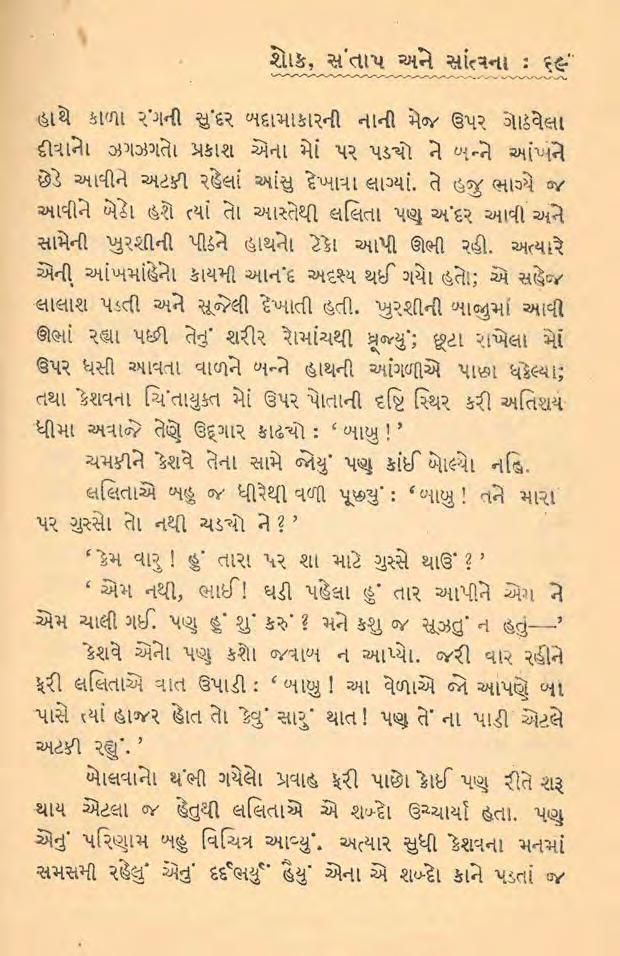 શોક, સંતાપ અને સાંત્વના : ૬૯
હાથે કાળા રંગની સુંદર બદામાકારની નાની મેજ ઉપર ગોઠવેલા
દીવાનો ઝગઝગતો પ્રકાશ એના મોં પર પડ્યો ને બન્ને આંખને
છેડે આવીને અટકી રહેલાં આંસુ દેખાવા લાગ્યાં. તે હજુ ભાગ્યે જ
આવીને બેઠો હશે ત્યાં તો આસ્તેથી લલિતા પણ અંદર આવી અને
સામેની ખુરશીની પીઠને હાથનો ટેકો આપી ઊભી રહી. અત્યારે
એની આંખમાંહેનો કાયમી આનંદ અદશ્ય થઈ ગયો હતો; એ સહેજ
લાલાશ પડતી અને સૂજેલી દેખાતી હતી. ખુરશીની બાજુમાં આવી
ઊભાં રહ્યા પછી તેનું શરીર રોમાંચથી ધ્રૂજ્યું; છૂટા રાખેલા મોં
ઉપર ધસી આવતા વાળને બન્ને હાથની આંગળીએ પાછા ધકેલ્યા;
તથા કેશવના ચિંતાયુક્ત મોં ઉપર પોતાની દૃષ્ટિ સ્થિર કરી અતિશય
ધીમા અવાજે તેણે ઉદ્ગાર કાઢ્યો : ‘બાબુ!’
ચમકીને કેશવે તેના સામે જોયું પણ કાંઈ બોલ્યો નહિ.
લલિતાએ બહુ જ ધીરેથી વળી પૂછ્યું : ‘બાબુ! તને મારા
પર ગુસ્સો તો નથી ચડ્યો ને?’
‘કેમ વારુ! હું તારા પર શા માટે ગુસ્સે થાઉં?’
‘એમ નથી, ભાઈ! ઘડી પહેલા હું તાર આપીને એમ ને
એમ ચાલી ગઈ. પણ હું શું કરું? મને કશુ જ સૂઝતું ન હતું—’
કેશવે એનો પણ કશો જવાબ ન આપ્યો. જરી વાર રહીને
ફરી લલિતાએ વાત ઉપાડી : ‘બાબુ! આ વેળાએ જો આપણે બા
પાસે ત્યાં હાજર હોત તો કેવું સારું થાત! પણ તેં ના પાડી એટલે
અટકી રહ્યું.’
બોલવાનો થંભી ગયેલો પ્રવાહ ફરી પાછો કોઈ પણ રીતે શરૂ
થાય એટલા જ હેતુથી લલિતાએ એ શબ્દો ઉચ્ચાર્યા હતા. પણ
એનું પરિણામ બહુ વિચિત્ર આવ્યું. અત્યાર સુધી કેશવના મનમાં
સમસમી રહેલું એનું દર્દભર્યું હૈયું એના એ શબ્દો કાને પડતાં જ